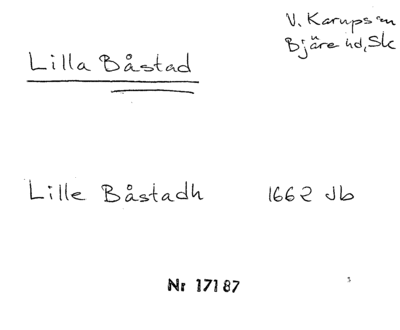 V. Karups sn
Bjäre hd, Sk
Lilla Båstad
Lille Båstadh 1662 Jb
Nr 17187